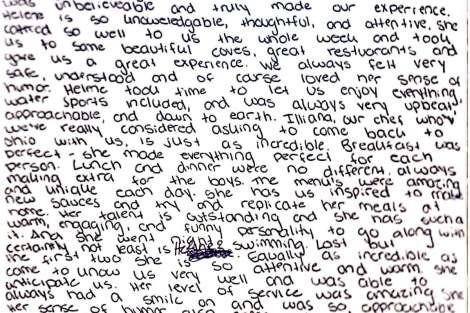 was unbelieveable and truly made our experience.
Helene is so unowledgable, thoughtful, and attentive, she
catered so well to us the whole week and took
us to some beautiful coves, great restuorants and
gave us a great experience. We always felt very
safe, understood and of carse loved her sense of
humor. Helene took time to let us enjoy everything,
water sports included, and was always very upbeat,
approachable, and down to earth. Illiana, our chef who
we've really considered asking to come back to
Ohio with us, is just as incredible. Breakfast was
perfect - she made everything perfect for each
person. Lunch and dinner were no different, always
making extra for the boys. The menu's were amazing
and unique each day. She has us inspired to make
new sauces and try and replicate her meals at
home. Her talent is outstanding and she has such a
warm, engaging, and funny personality to go along with
it. And she went night swimming. Lost but
certainly not least is
the first two she is equally as incredible as
so attentive and warm. She
came to know us very well and was able to
anticipate us. Her level of service was amazing she
always had a smile on and was so approachable
Her sense of humor